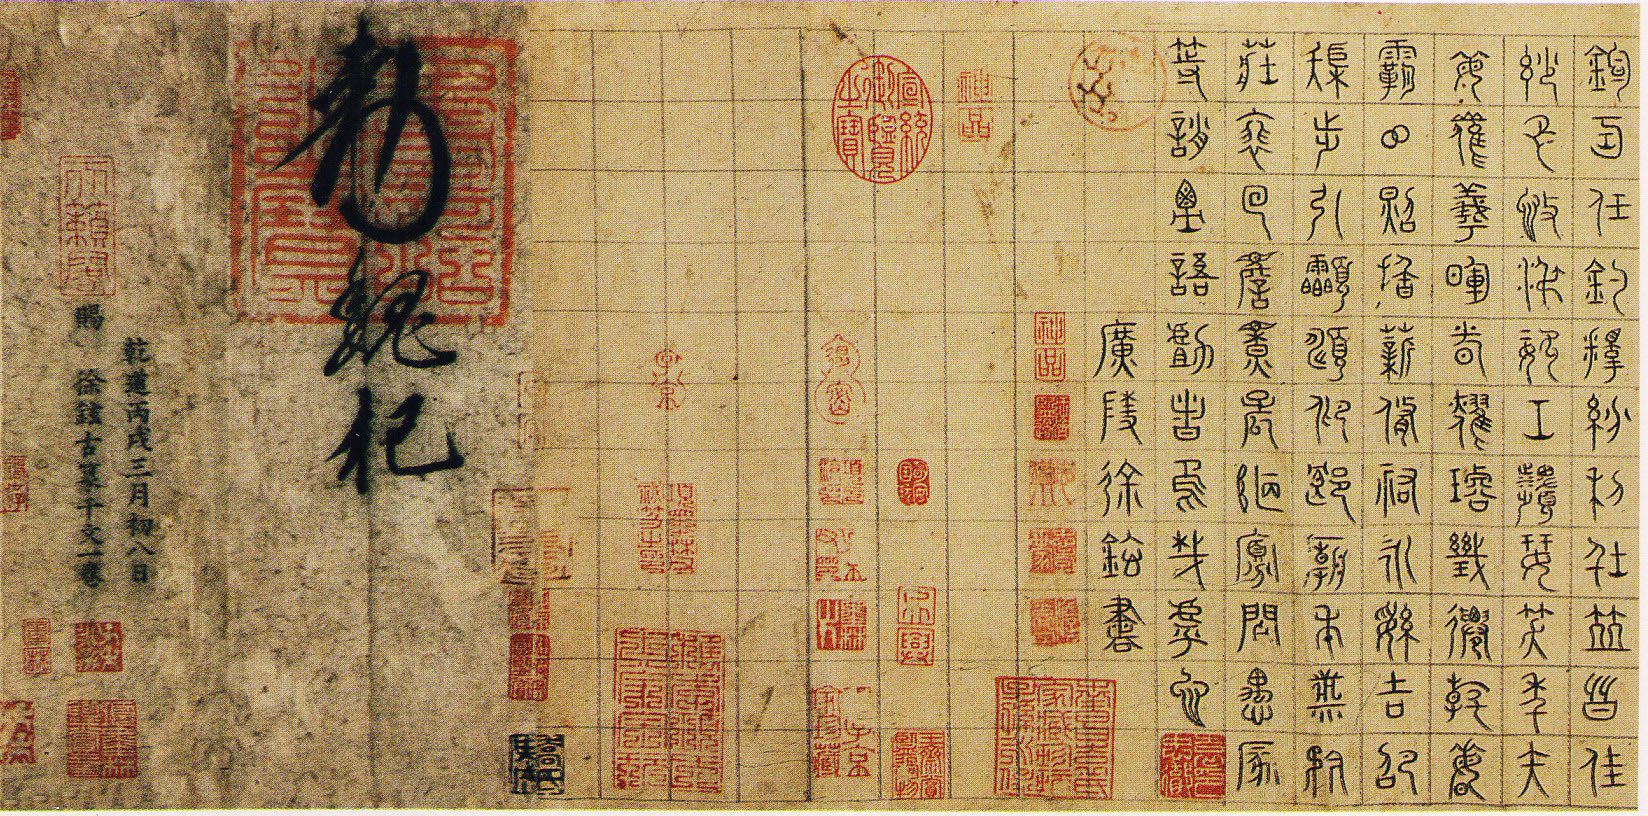 鈞巧任釣釋紛利俗並皆佳
妙毛施淑姿工顰妍笑年矢
每催羲暉朗曜璇璣懸斡晦
魄環照指薪修祜永綏吉劭
矩步引領俯仰廊廟束帶矜
莊徘徊瞻眺孤陋寡聞愚蒙
等誚謂語助者焉哉乎也
廣陵徐鉉書
神品
宣統御覽之寶
神品
子京
勅魏杞
乾道丙戌三月初八日
賜 徐鉉古篆千文一卷